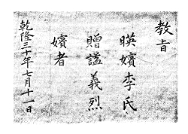 教旨
暎嬪李氏
贈諡義烈
嬪者
乾隆三十年七月十一日